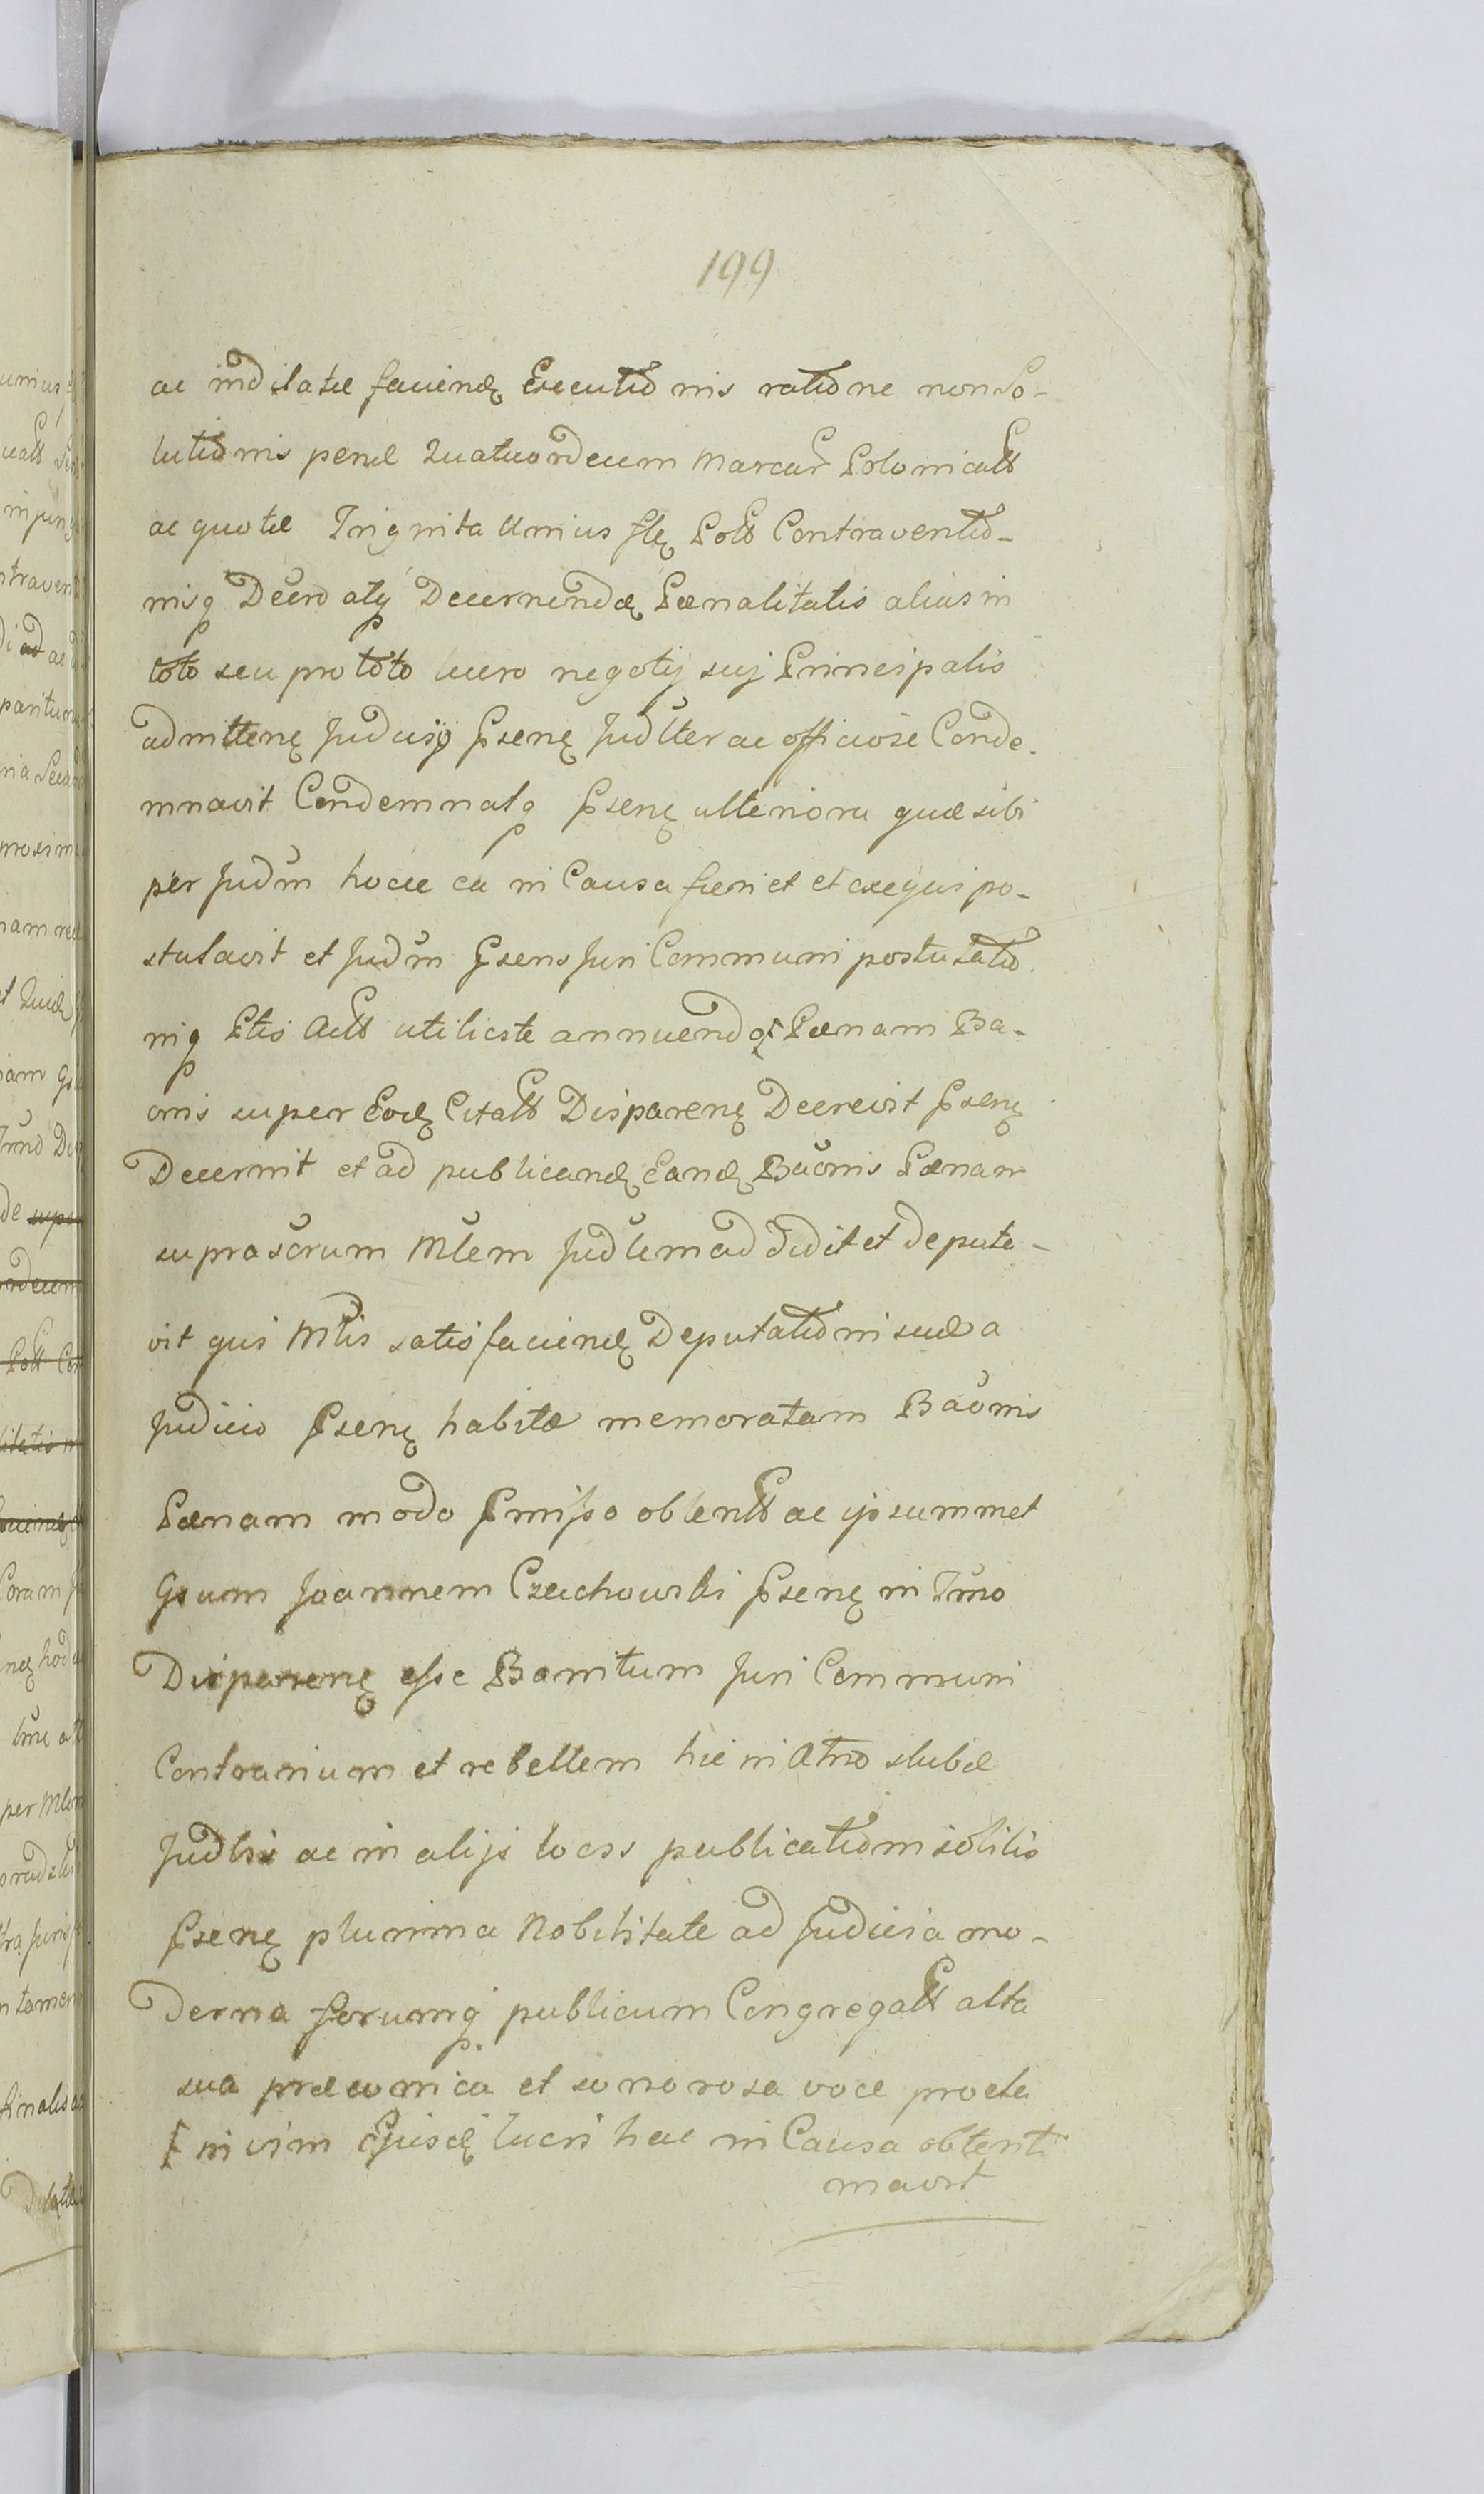 199
ac indilatæ faciendę Executionis ratione non So-
lutionis penæ Quatuordecim Marcar Polonicall
ac quotæ Triginta Unius flę Poll Contraventio-
nisq Decro atq Decernendæ Pænalitatis alias in
toto seu pro toto lucro negotij suj Principalis
admittenę Judicijq Psenę Judlter ac officiose Conde-
mnavit Condemnatq Psenę ulteriora quæ sibi
per Judm hocce ea in Causa fieri et et exequi po-
stulavit et Judm Psens Juri Communi postulatio-
niq Ptis Actt utilicste annuendo Pænam Ba-
onis super Eodę Citatt Disparenę Decrevit Psenę
Decernit et ad publicandę Eandę Baonis Pænam
suprascrum Mlem Judlem addidit et deputa-
vit qui Mlis satisfaciendę Deputationi suæ a
Judicio Psenę habitæ memoratam Baonis
Pænam modo Pmisso obtentt ac ipsummet
Gsum Joannem Czechowski Psenę in Tmo
Disparenę esse Banitum Juri Communi
Contrarium et rebellem hic in Atrio stubæ
Judlis ac in alijs locis publicationi solitis
Psenę plurima Nobilitate ad Judicia mo-
derna forumq publicum Congregatt alta
sua præconica et sonorosa voce procla
in vim Ejusdę lucri hac in Causa obtenti
mavit